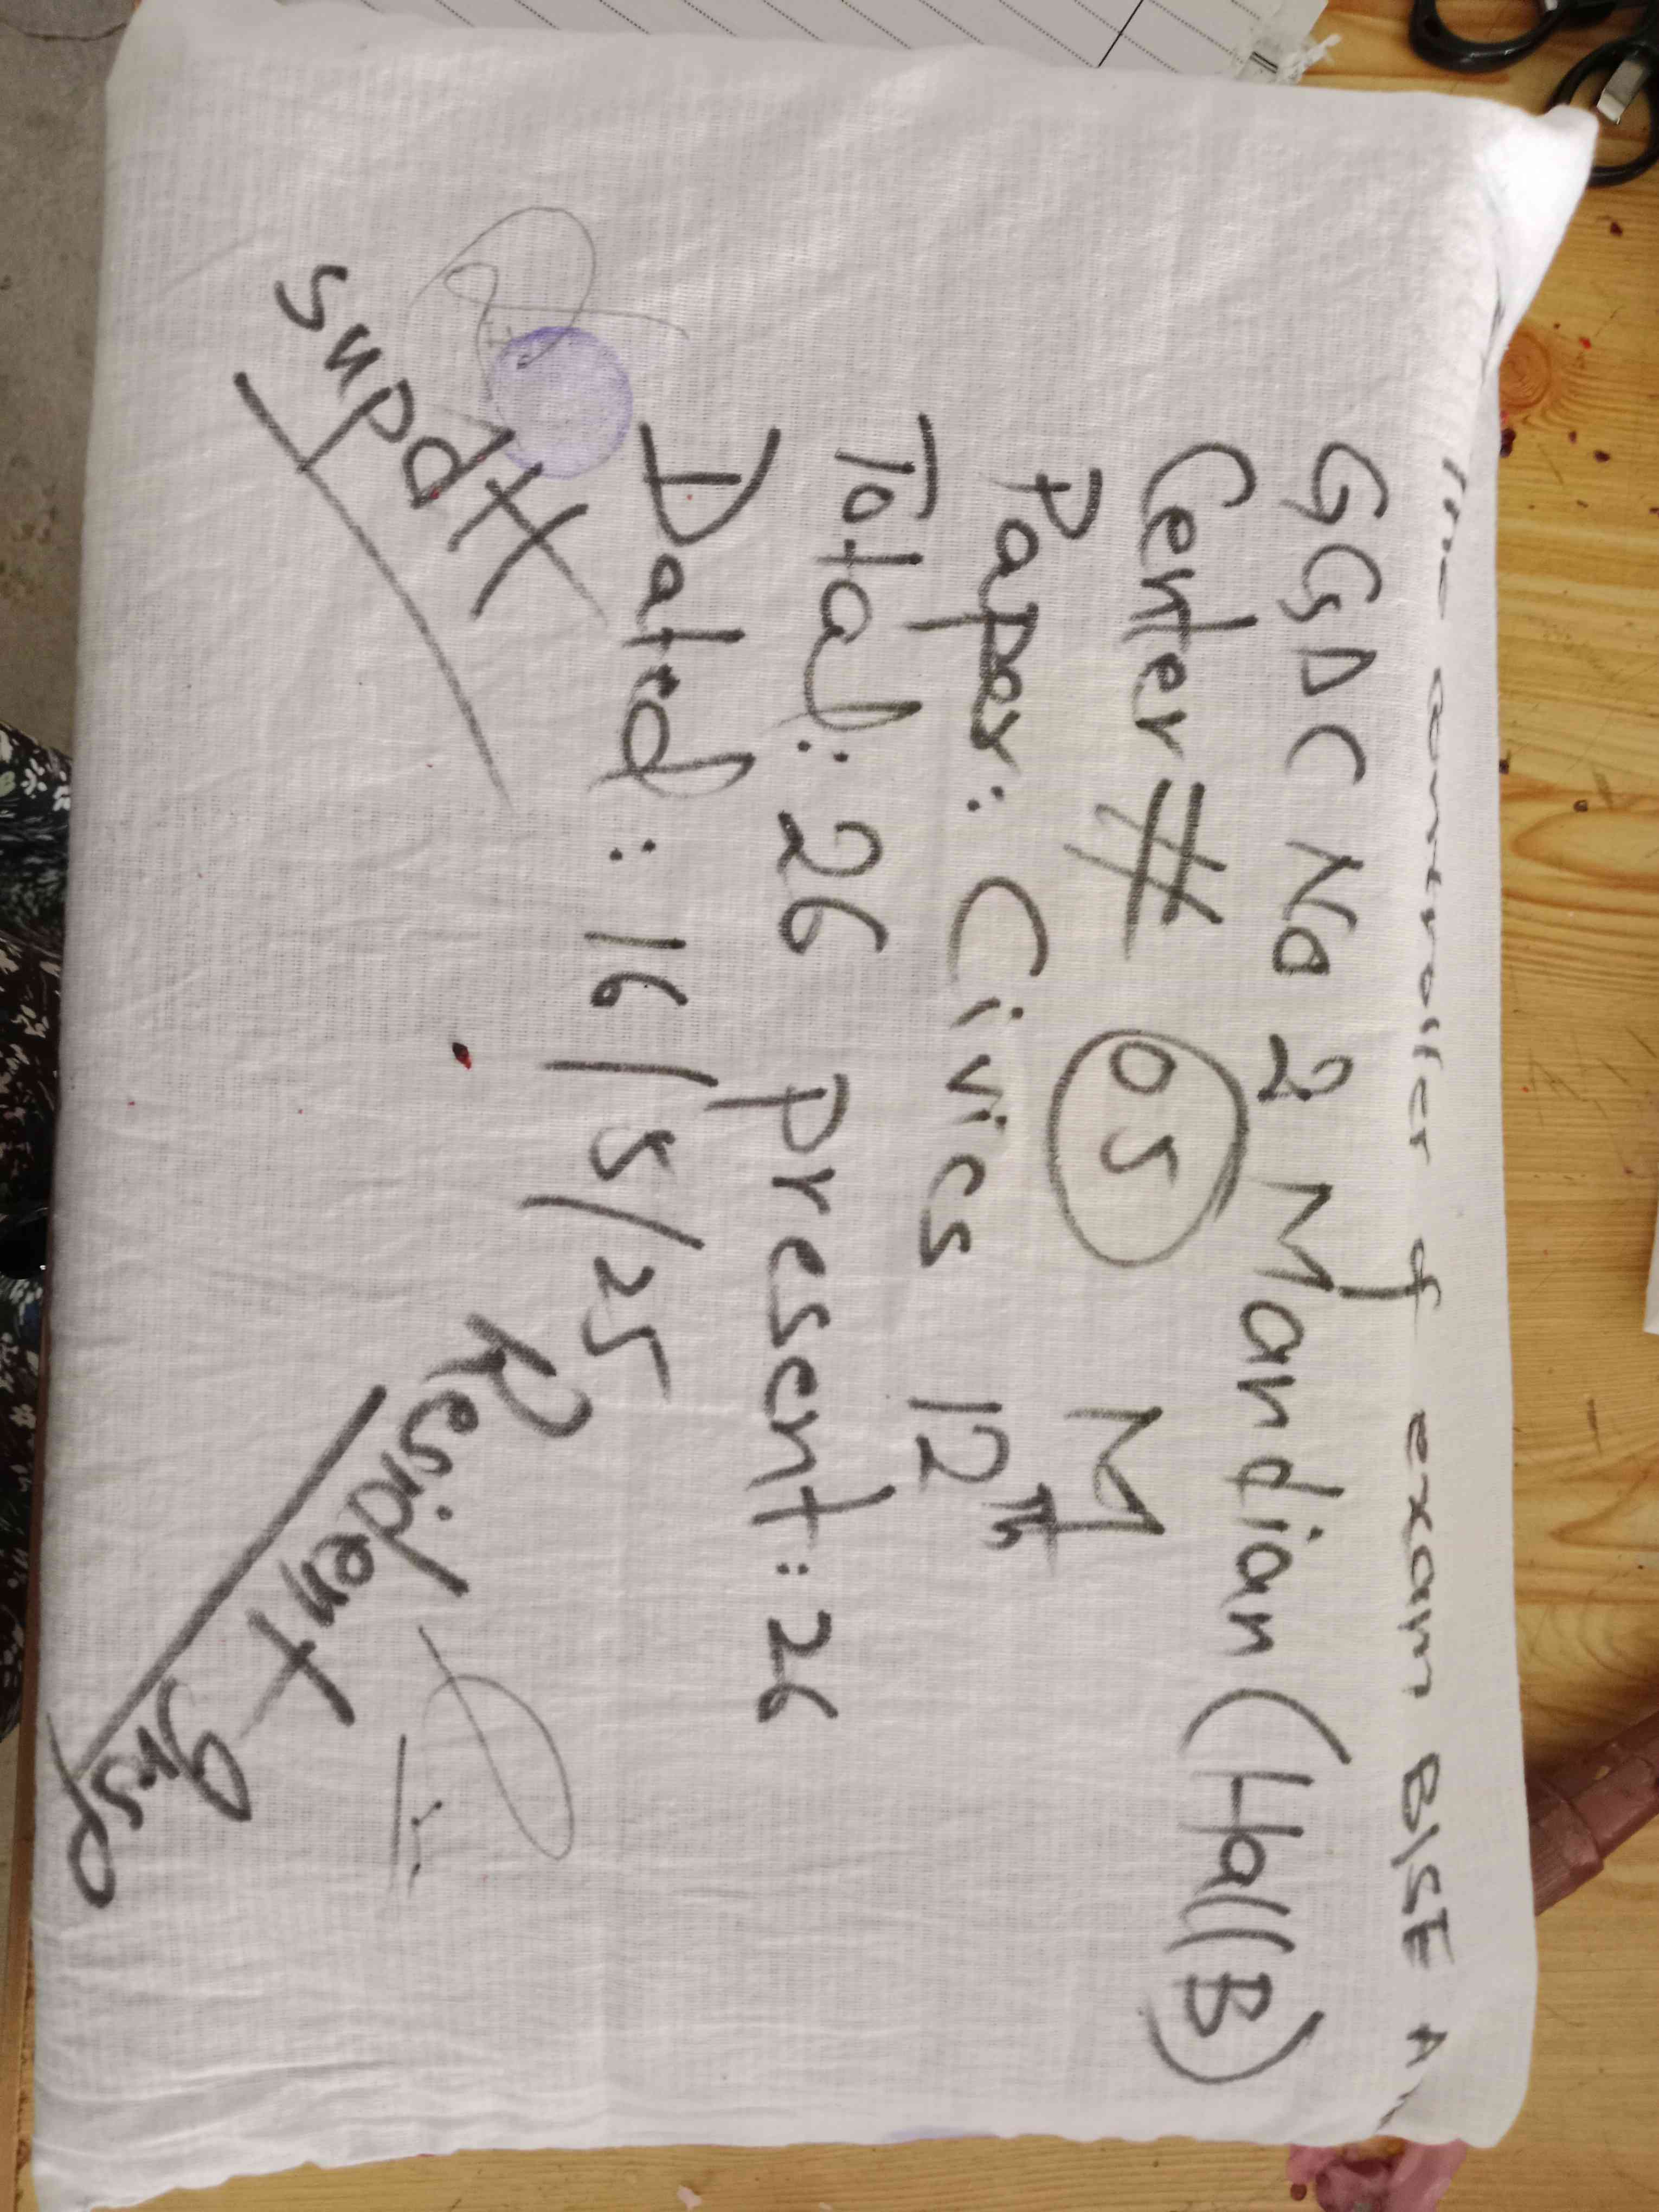 The controller of exam BISE A
GGDC No 2 Mandian (Hall B)
Center # 05 M
Paper: Civics 12th
Total: 26 Present: 26
Dated: 16/5/25
Supdtt
Resident Insp